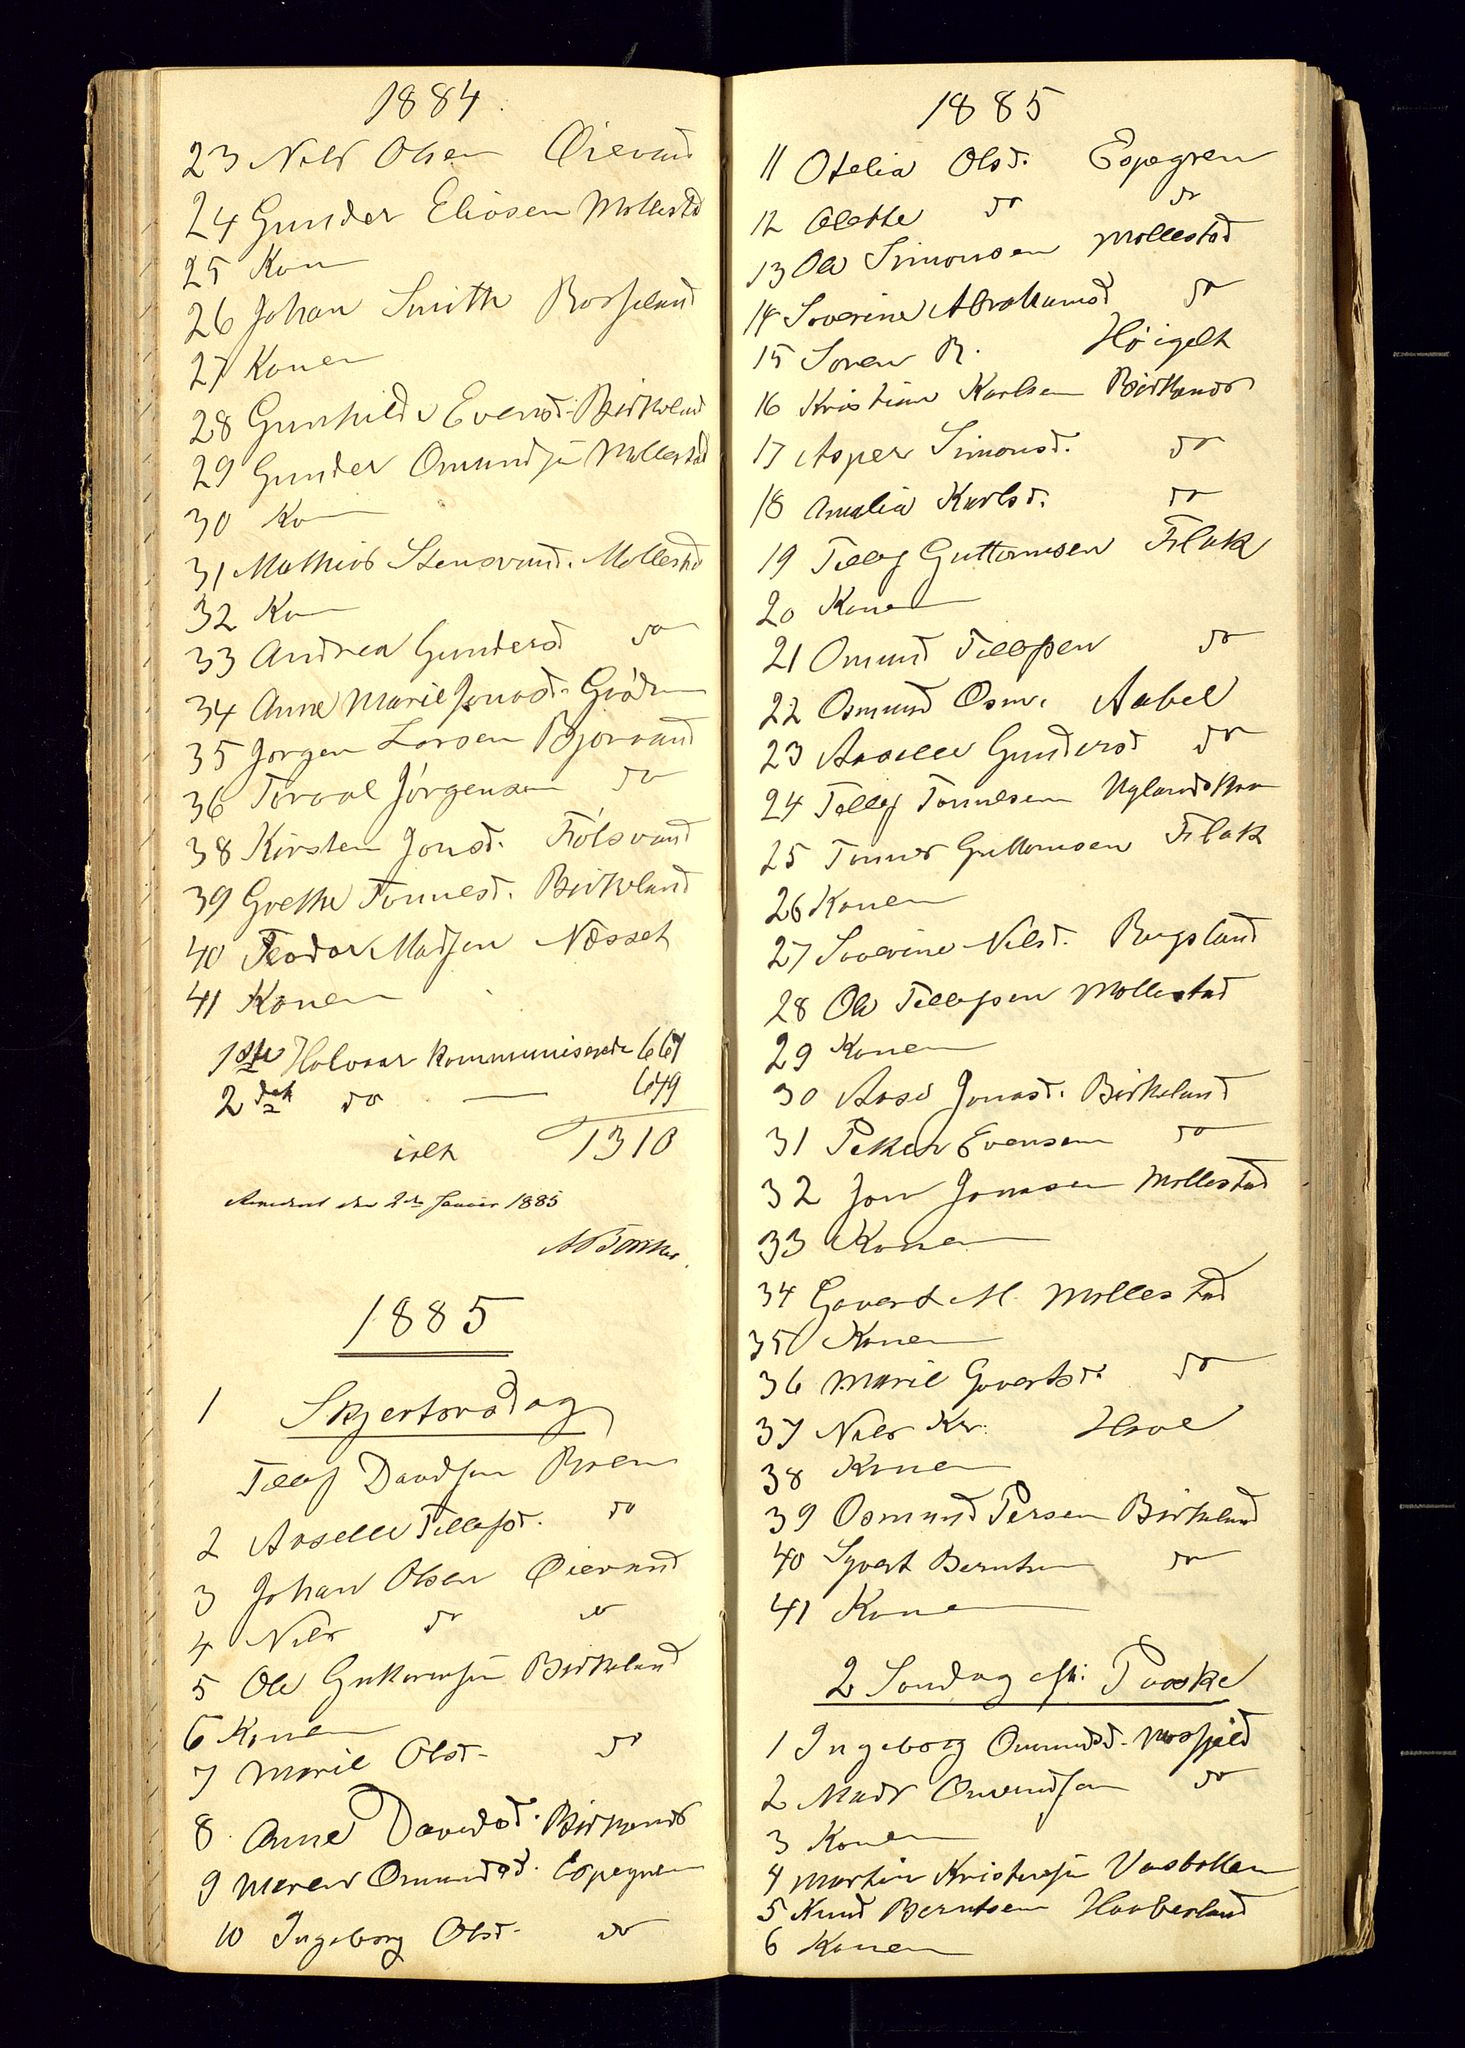 1884.
23 Nils Olsen Øievand
24 Gunder Eliasen Mollestad
25 Kon
26 Johan Smith Rosseland
27 Konen
28 Gunhilde Evensd. Birkeland
29 Gunder Omundsen Mollestad
30 Ko
31 Mathias Stensvand. Mollestad
32 Ko
33 Andrea Gundersd do
34 Anne Marie Jonasd.
35 Jørgen Larsen Bjorvand
36 Torval Jørgensen do
38 Kirsten Jonsd. Fidsvand
39 Grethe Tonnesd. Birkeland
40 Teodor Madsen Næsset
41 Konen
1ste Halvaar kommuniserede 661
2det do — 649
ialt 1310
den 2den Januar 1885
1885
1 Skjertorsdag
Tellef Davidsen Roen
2 Aaselle Tellefsd. do
3 Johan Olsen Øievand
4 Nils do do
5 Ole Guttormsen Birkeland
6 Konen
7 Marie Olsd. do
8. Anne Davidsd. Birkelands
9 Maren Omundsd. Espegren
10 Ingeborg Olsd. do
1885
11 Otelia Olsd. Espegren
12 Olette do do
13 Ole Simonsen Mollestad
14 Severine Abrahamsd do
15 Soren R. Høigelt
16 Kristian Karlsen Birkelands
17 Asper Simonsd. do
18 Amalia Karlsd. do
19 Tellef Guttormsen Flak
20 Konen
21 Omund Tellefsen do
22 Osmund Osm. Aabel
23 Aaselle Gundersd do
24 Tellef Tonnesen Uglands
25 Tonnes Guttormsen Flak
26 Konen
27 Severine Nilsd. Rugsland
28 Ole Tellefsen Mollestad
29 Konen
30 Aase Jonasd. Birkeland
31 Peter Evensen do
32 Jon Jonasen Mollestad
33 Konen
34 Govert M. Mollestad
35 Konen
36 Marie Govertsd. do
37 Nils Kr. Have
38 Konen
39 Osmund Persen Birkeland
40 Syvert Berntsen do
41 Konen
2 Søndag eft: Paaske
1 Ingeborg Omundsd. Mosfjeld
2 Mads Omundsen do
3 Konen
4 Martin Kristensen Vasbotten
5 Knud Berntsen Haaberland
6 Konen